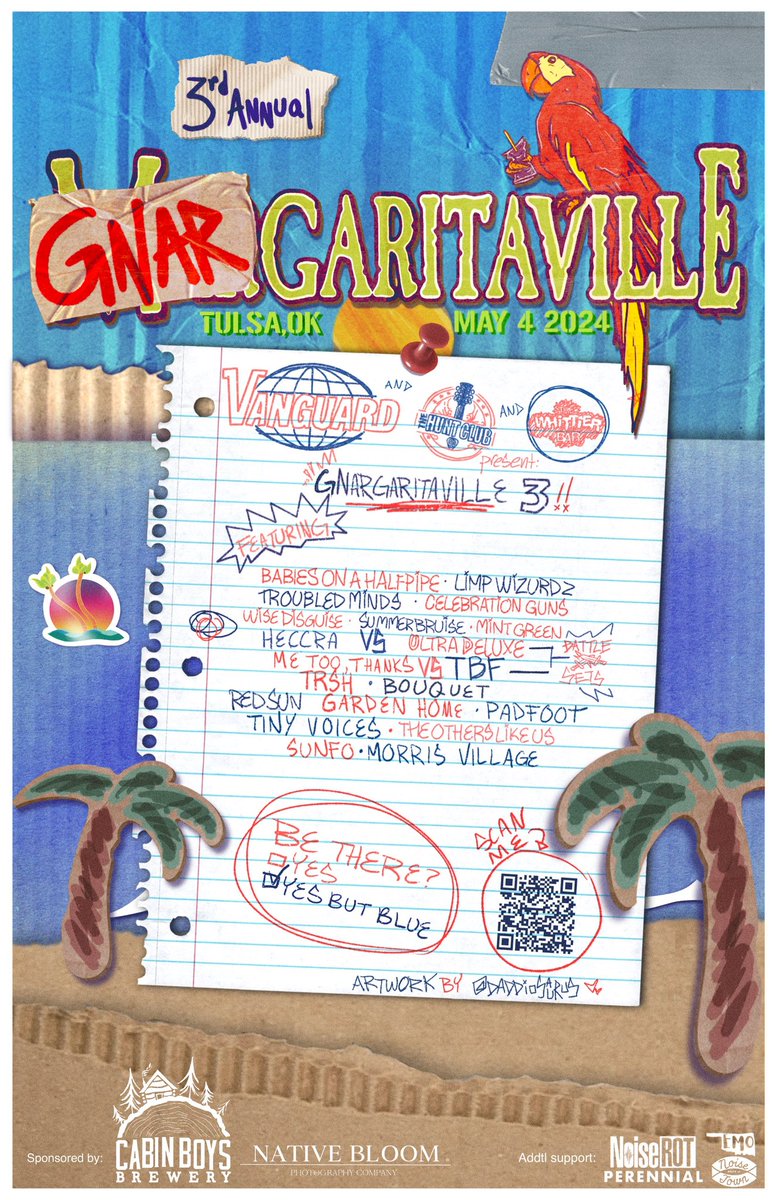 3rd ANNUAL
GNARGARITAVILLE
TULSA, OK MAY 4 2024
VANGUARD AND THE HUNT CLUB AND WHITTIER BAR
present:
GNARGARITAVILLE 3!!
FEATURING
BABIES ON A HALFPIPE · LIMP WIZURDZ
TROUBLED MINDS · CELEBRATION GUNS
WISE DISGUISE · SUMMERBRUISE · MINT GREEN
HECCRA VS ULTRA DELUXE BATTLE
ME TOO, THANKS VS TBF SETS
TRSH · BOUQUET
RED SUN GARDEN HOME · PADFOOT
TINY VOICES · THE OTHERS LIKE US
SUNFO · MORRIS VILLAGE
BE THERE?
YES
YES BUT BLUE
SCAN ME
ARTWORK BY @DADDIOSAURUS
Sponsored by: CABIN BOYS BREWERY NATIVE BLOOM PHOTOGRAPHY COMPANY Addtl support: NoiseROT PERENNIAL EMO Noise Town